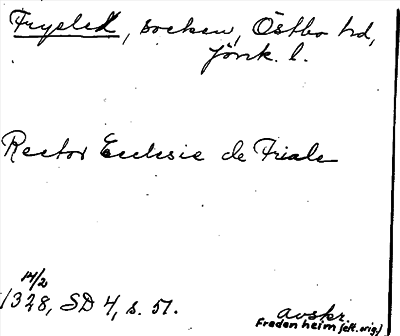 Fryeled, socken, Östbo hd,
Jönk. l.
Rector Ecclesie de Friale
14/2
1328, SD 4, s. 51.
avskr.
Fredenheim (ek. orig)